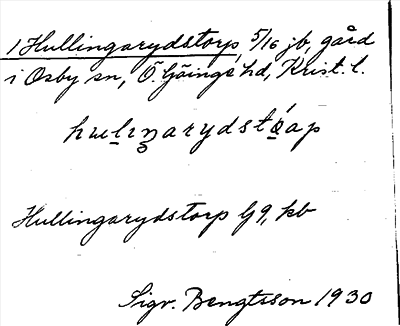 1 Hullingarydstorp, 5/16 jb, gård
i Osby sn, Ö. Göinge hd, Krist. l.
Hullingarydstorp G9, kb
Sigv. Bengtsson 1930